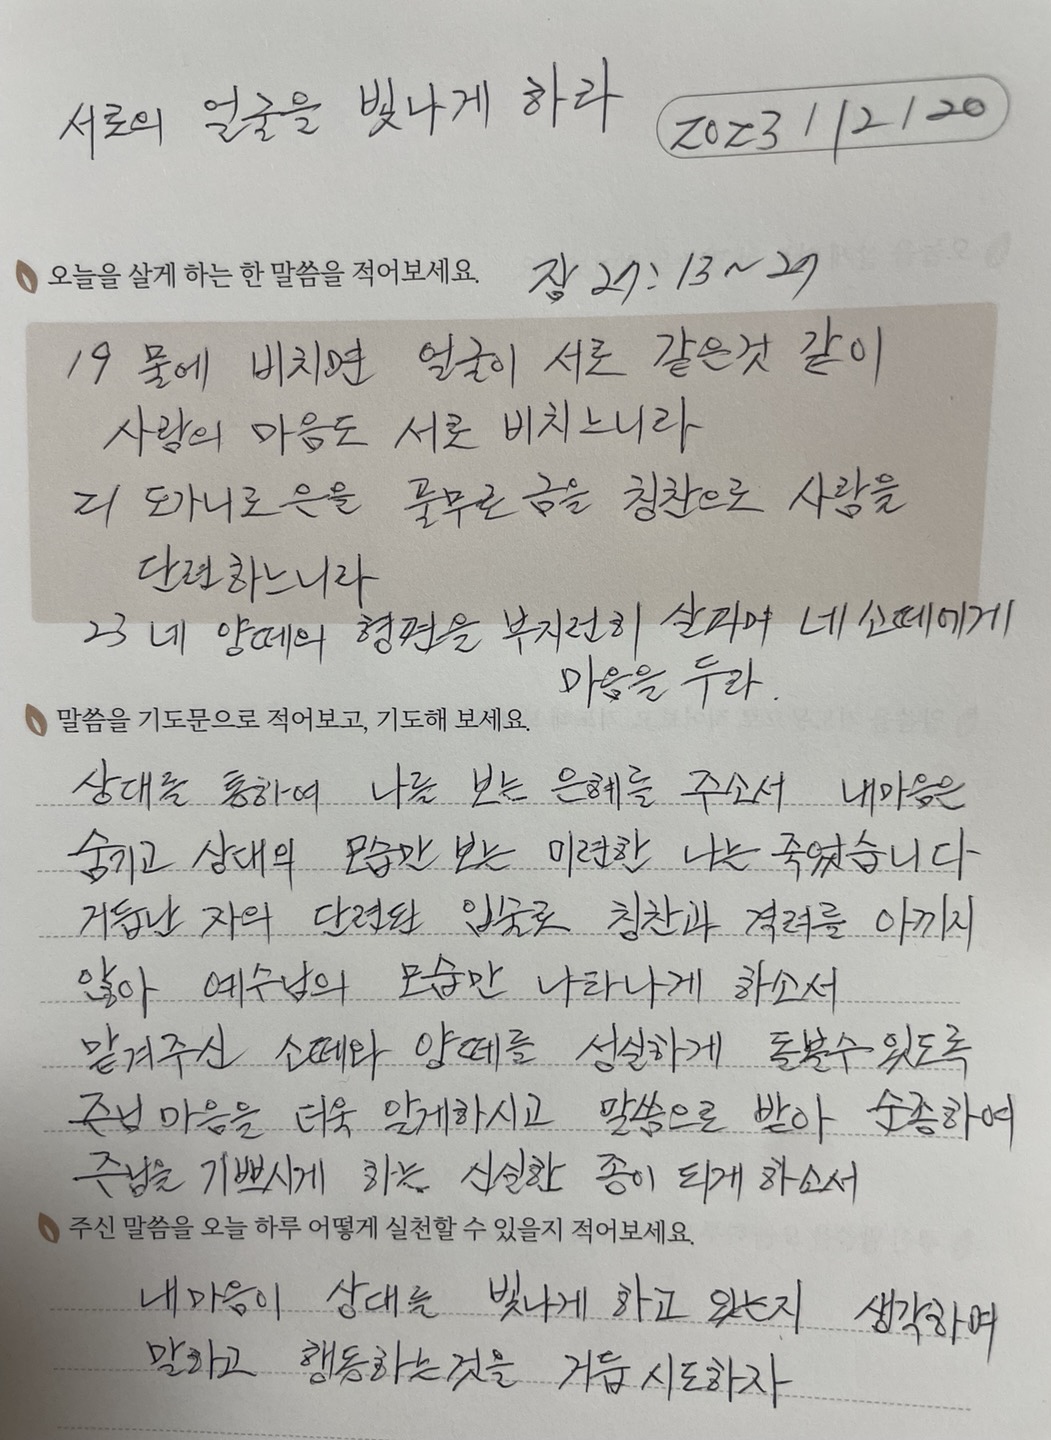 서로의 얼굴을 빛나게 하라 2023/12/20
오늘을 살게 하는 한 말씀을 적어보세요. 잠 27:13~27
19 물에 비치면 얼굴이 서로 같은것 같이
사람의 마음도 서로 비치느니라
21 도가니로 은을 풀무로 금을 칭찬으로 사람을
단련하느니라
23 네 양떼의 형편을 부지런히 살피며 네 소떼에게
마음을 두라.
말씀을 기도문으로 적어보고, 기도해 보세요.
상대를 통하여 나를 보는 은혜를 주소서 내마음은
숨기고 상대의 모습만 보는 미련한 나는 죽었습니다
거듭난 자의 단련된 입술로 칭찬과 격려를 아끼지
않아 예수님의 모습만 나타나게 하소서
맡겨주신 소떼와 양떼를 성실하게 돌볼수 있도록
주님 마음을 더욱 알게하시고 말씀으로 받아 순종하여
주님을 기쁘시게 하는 신실한 종이 되게 하소서
주신 말씀을 오늘 하루 어떻게 실천할 수 있을지 적어보세요.
내마음이 상대를 빛나게 하고 있는지 생각하여
말하고 행동하는것을 거듭 시도하자